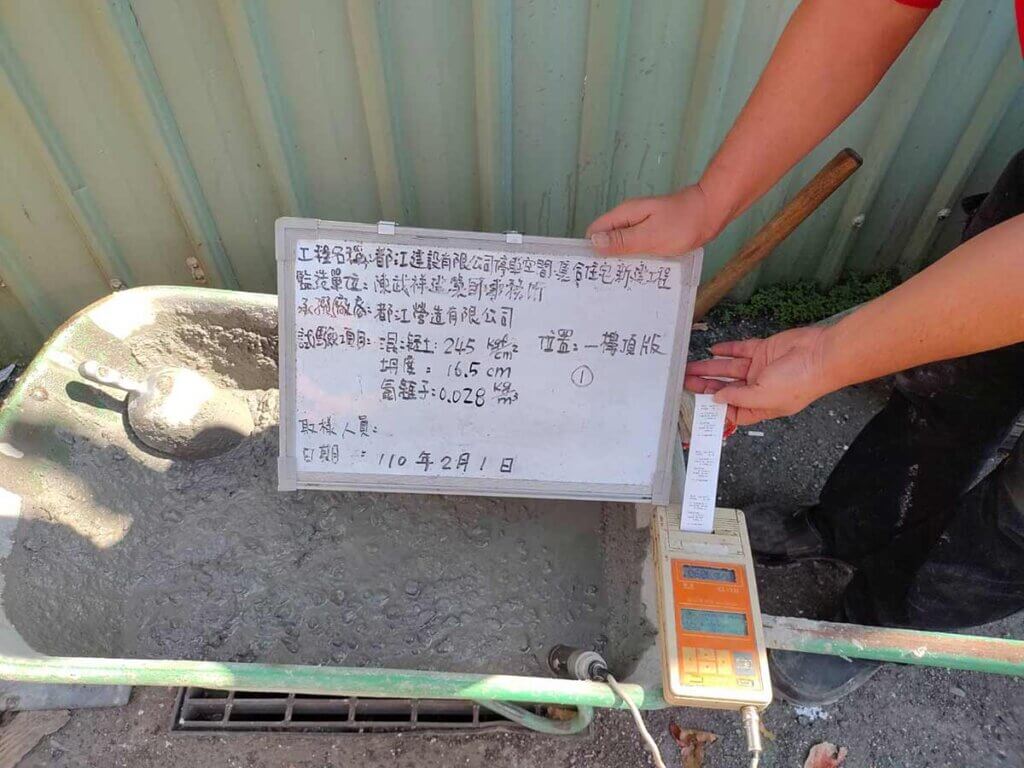 工程名稱:都江建設有限公司停駐空間.集合住宅新建工程
監造單位:陳武祿建築師事務所
承攬廠商:都江營造有限公司
試驗項目:混凝土:245 kgf/cm² 位置:一樓頂版
坍度:16.5 cm ①
氯離子:0.028 kg/m³
取樣人員:
日期:110年2月1日